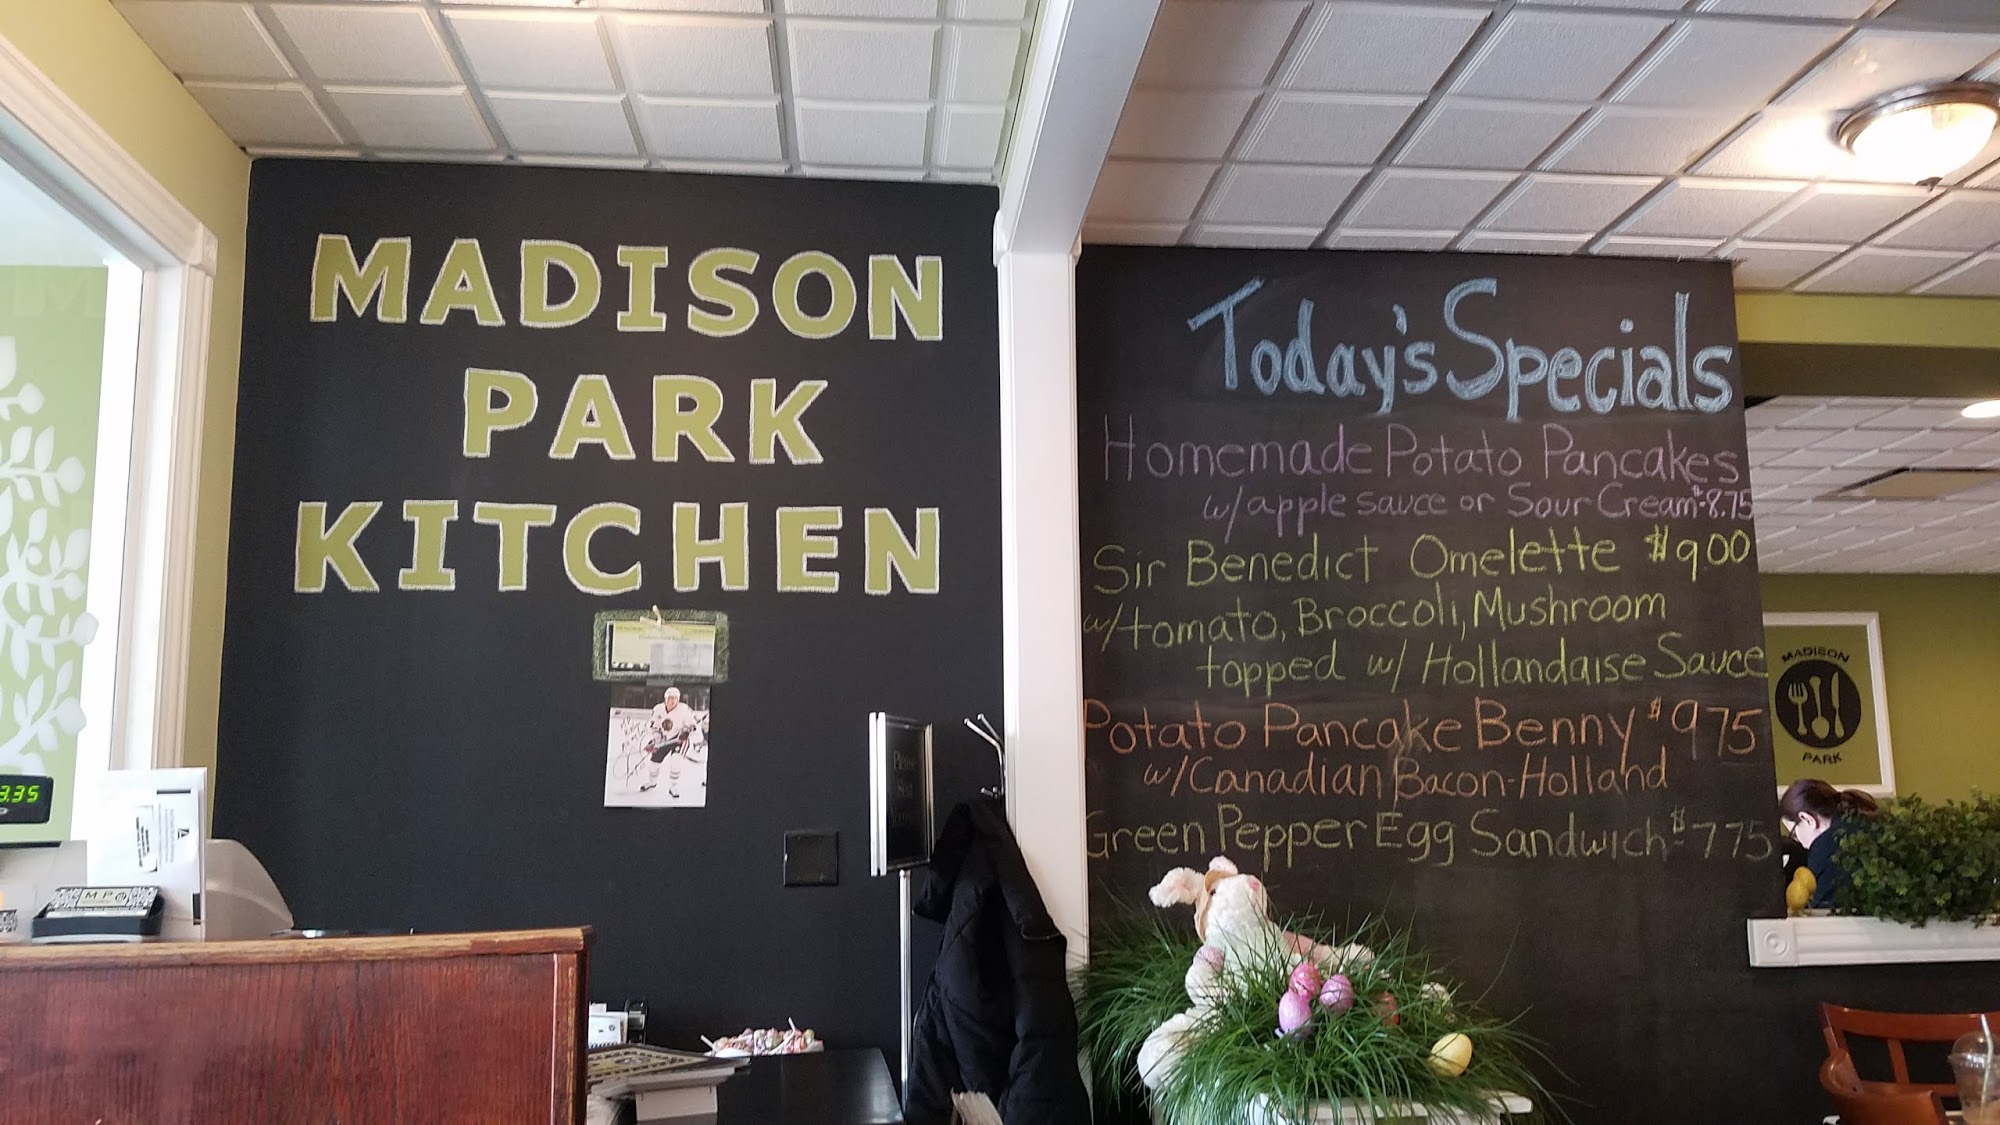 MADISON
PARK
KITCHEN
Today's Specials
Homemade Potato Pancakes
w/apple sauce or Sour Cream $8.75
Sir Benedict Omelette $9 00
w/tomato, Broccoli, Mushroom
topped w/ Hollandaise Sauce
Potato Pancake Benny $9 75
w/Canadian Bacon-Holland
Green Pepper Egg Sandwich $7 75
MADISON
PARK
Please
3.35
M.P